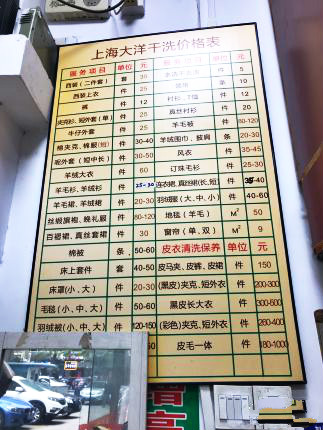 上海大洋干洗价格表
服务项目 单位 元
西装(二件套) 套 30
西装上衣 件 25
裤 件 12
夹克衫、短外套(单) 件 25
牛仔外套 件 25
棉夹克、棉服(短) 件 30-40
呢外套(短中长) 件 30-50
羊绒大衣 件 60
羊毛衫、羊绒衫 件 25-30
羊毛裙、羊绒裙 件 20-30
丝缎旗袍、晚礼服 件 80-120
白褶裙、真丝套裙 件 30
棉被 条 50-60
床上套件 套 40-50
床罩(小、大) 件 20-30
毛毯(小、中、大) 件 50-60
羽绒被(小、中、大) 件 120-150
单位 元
件 5
条 10
衬衫、T恤 件 12
真丝衬衫 件 20
羊毛被 件 80-120
羊绒围巾、披肩 条 20-30
风衣 件 35-45
订珠毛衫 件 25-30
连衣裙、真丝裙(长、短) 件 35-40
羽绒服(大、中、小) 件 40-60
地毯(羊毛) M² 50
窗帘(单、双) M² 9
皮衣清洗保养 单位 元
皮马夹、皮裤、皮裙 件 150
(黑皮)夹克、短外衣 件 200-300
黑皮长大衣 件 300-500
(彩色)夹克、短外衣 件 260-400
皮毛一体 件 180-1000